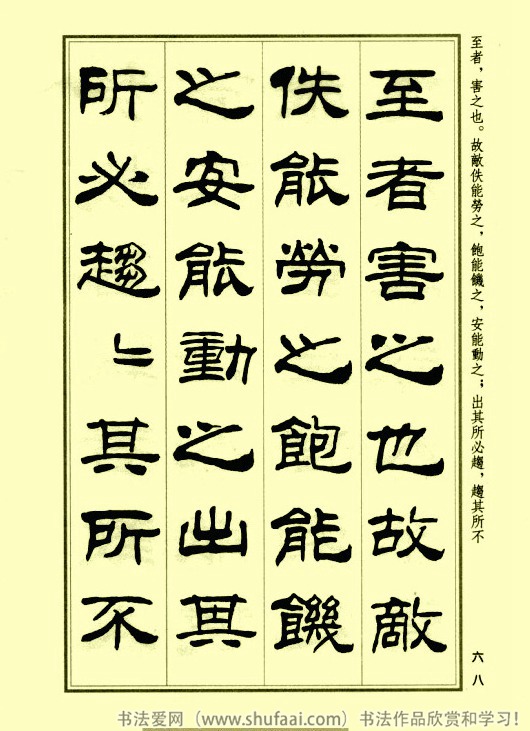 至者，害之也。故敵佚能勞之，飽能饑之，安能動之；出其所必趨，趨其所不
至者害之也故敵
佚能勞之飽能饑
之安能動之出其
所必趨〻其所不
六八
书法爱网（www.shufaai.com）书法作品欣赏和学习！